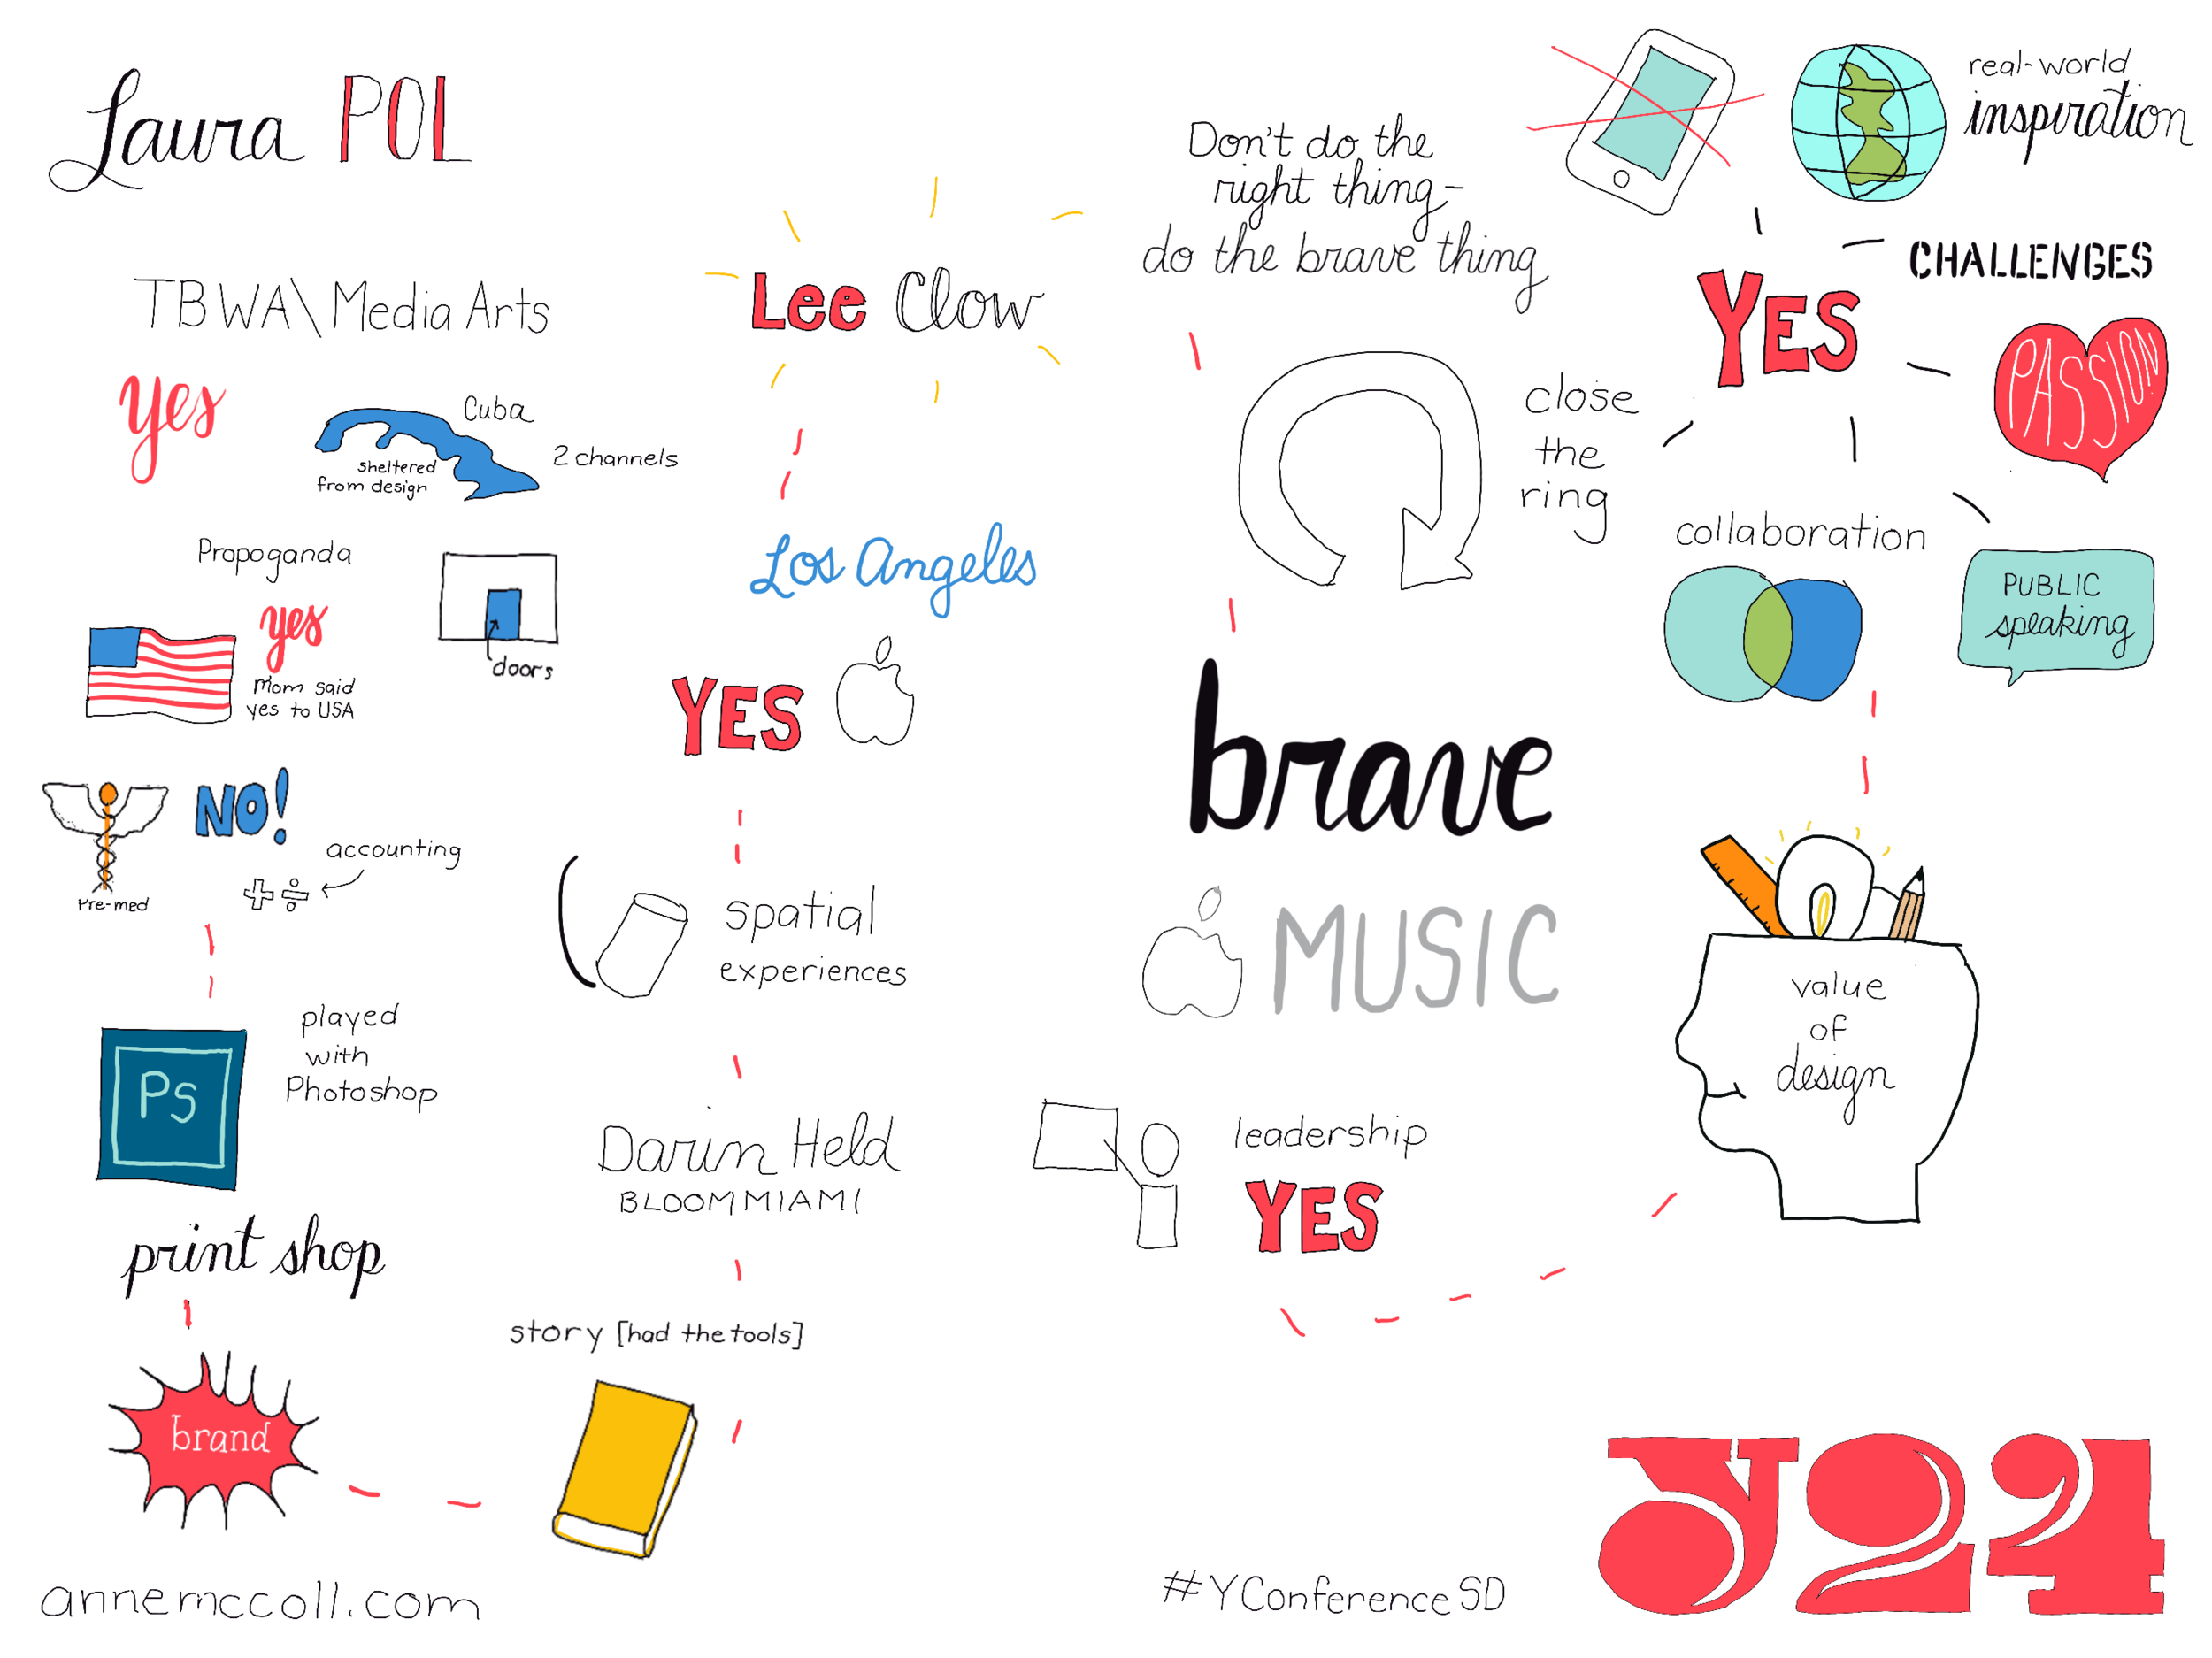 Laura POL
TBWA\Media Arts
yes
Cuba
sheltered
from design
2 channels
Propoganda
yes
mom said
yes to USA
doors
NO!
Pre-med
accounting
Ps
played
with
Photoshop
print shop
brand
annemccoll.com
story [had the tools]
Darin Held
BLOOMMIAMI
spatial
experiences
YES
Los Angeles
Lee Clow
Don't do the
right thing-
do the brave thing
close
the
ring
brave
MUSIC
leadership
YES
value
of
design
real-world
inspiration
CHALLENGES
YES
PASSION
collaboration
PUBLIC
speaking
#YConferenceSD
Y24